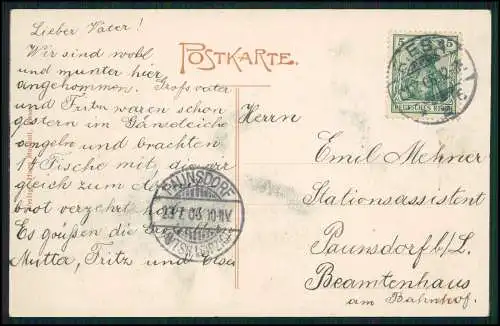 Lieber Vater!
Wir sind wohl
und munter hier
angekommen. Großvater
und Fritz waren schon
gestern im Gänseleiche
angeln und brachten
14 Fische mit, die wir
gleich zum
brot verzehrt
Es grüßen die
Mutter, Fritz und Else
POSTKARTE.
5 5
DEUTSCHES REICH
PAUNSDORF
23.7.06. 10-11V
Herrn
Emil Mehner
Stationsassistent
Paunsdorf b/L.
Beamtenhaus
am Bahnhof.